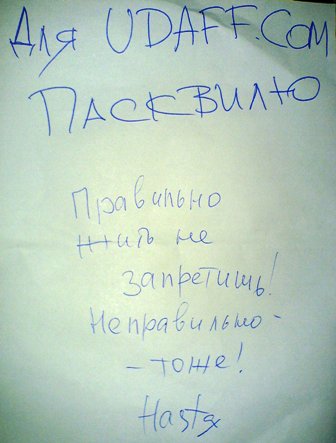 Для UDAFF.COM
ПАСКВИЛЮ
Правильно
жить не
запретишь!
Неправильно -
- тоже!